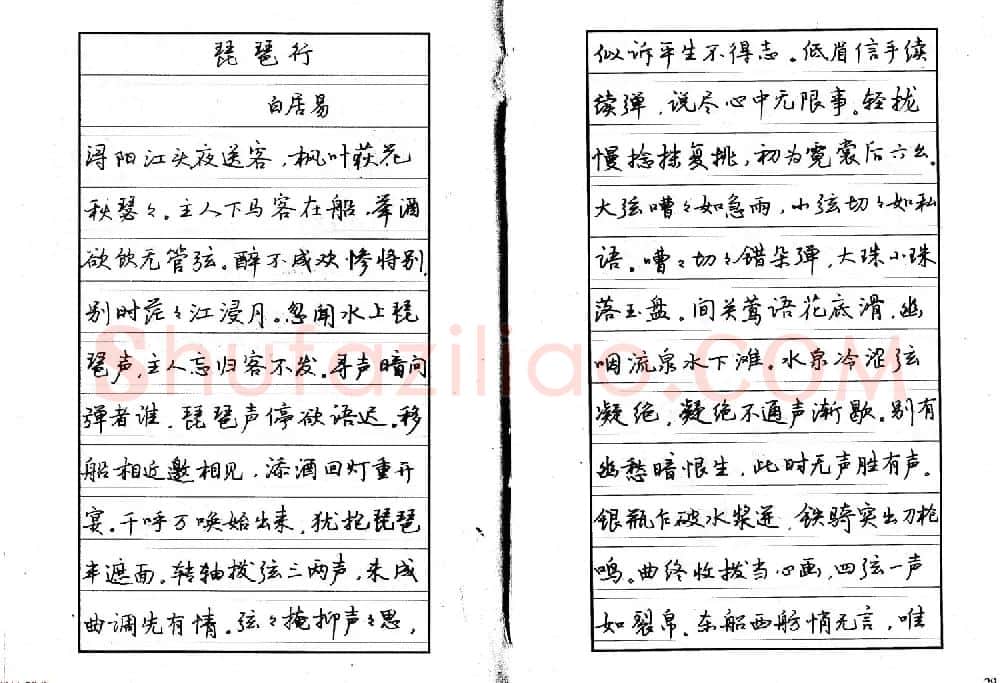 琵琶行
白居易
浔阳江头夜送客，枫叶荻花
秋瑟々。主人下马客在船，举酒
欲饮无管弦。醉不成欢惨将别，
别时茫々江浸月。忽闻水上琵
琶声，主人忘归客不发。寻声暗问
弹者谁，琵琶声停欲语迟。移
船相近邀相见，添酒回灯重开
宴。千呼万唤始出来，犹抱琵琶
半遮面。转轴拨弦三两声，未成
曲调先有情。弦々掩抑声々思，
似诉平生不得志。低眉信手续
续弹，说尽心中无限事。轻拢
慢捻抹复挑，初为霓裳后六幺。
大弦嘈々如急雨，小弦切々如私
语。嘈々切々错朵弹，大珠小珠
落玉盘。间关莺语花底滑，幽
咽流泉水下滩。水泉冷涩弦
凝绝，凝绝不通声渐歇。别有
幽愁暗恨生，此时无声胜有声。
银瓶乍破水浆迸，铁骑突出刀枪
鸣。曲终收拨当心画，四弦一声
如裂帛。东船西舫悄无言，唯
Shufaziliao.COM
29